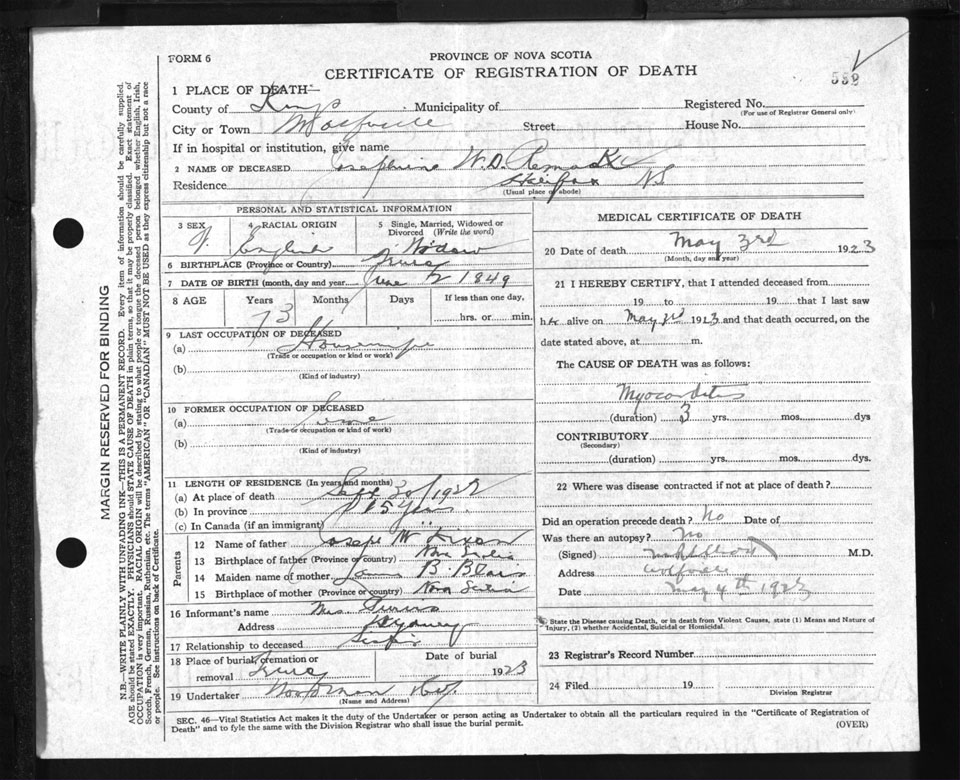 FORM 6
PROVINCE OF NOVA SCOTIA
CERTIFICATE OF REGISTRATION OF DEATH
582
1 PLACE OF DEATH—
County of Kings Municipality of
Registered No.
(For use of Registrar General only)
City or Town Wolfville Street House No.
If in hospital or institution, give name
2 NAME OF DECEASED Josephine W. D.
Residence Halifax NS
(Usual place of abode)
PERSONAL AND STATISTICAL INFORMATION
3 SEX F.
4 RACIAL ORIGIN English
5 Single, Married, Widowed or Divorced (Write the word) Widow
6 BIRTHPLACE (Province or Country) Truro
7 DATE OF BIRTH (month, day and year) June 1849
8 AGE Years 73 Months Days If less than one day,
hrs. or min.
9 LAST OCCUPATION OF DECEASED
(a) Housewife
(Trade or occupation or kind of work)
(b)
(Kind of industry)
10 FORMER OCCUPATION OF DECEASED
(a)
(Trade or occupation or kind of work)
(b)
(Kind of industry)
11 LENGTH OF RESIDENCE (In years and months)
(a) At place of death Sept 30/1922
(b) In province years
(c) In Canada (if an immigrant)
Parents
12 Name of father Joseph W Dixon
13 Birthplace of father (Province or country) Nova Scotia
14 Maiden name of mother B. Blair
15 Birthplace of mother (Province or country) Nova Scotia
16 Informant's name Mrs.
Address Sydney
17 Relationship to deceased
18 Place of burial, cremation or removal Truro
Date of burial 1923
19 Undertaker Woodman
(Name and Address)
MEDICAL CERTIFICATE OF DEATH
20 Date of death May 3rd 1923
(Month, day and year)
21 I HEREBY CERTIFY, that I attended deceased from
19 to 19 that I last saw
her alive on May 3rd 1923 and that death occurred, on
date stated above, at m.
The CAUSE OF DEATH was as follows:
Myocarditis
(duration) 3 yrs. mos. dys
CONTRIBUTORY
(Secondary)
(duration) yrs. mos. dys.
22 Where was disease contracted if not at place of death?
Did an operation precede death? No Date of
Was there an autopsy? No
(Signed) M.D.
Address Wolfville
Date May 4th 1923
State the Disease Causing Death, or in death from Violent Causes, state (1) Means and Nature of Injury, (2) whether Accidental, Suicidal or Homicidal.
23 Registrar's Record Number
24 Filed 19
Division Registrar
SEC. 46—Vital Statistics Act makes it the duty of the Undertaker or person acting as Undertaker to obtain all the particulars required in the "Certificate of Registration of
Death" and to fyle the same with the Division Registrar who shall issue the burial permit.
(OVER)
MARGIN RESERVED FOR BINDING
N.B.—WRITE PLAINLY WITH UNFADING INK—THIS IS A PERMANENT RECORD. Every item of information should be carefully supplied.
AGE should be stated EXACTLY. PHYSICIANS should STATE CAUSE OF DEATH in plain terms, so that it may be properly classified. Exact statement of
OCCUPATION is very important. RACIAL ORIGIN will be described by stating to what people or tongue the deceased person belonged whether English, Irish,
Scotch, French, German, Russian, Ruthenian, etc. The terms "AMERICAN" OR "CANADIAN" MUST NOT BE USED as they express citizenship but not a race
or people. See instructions on back of Certificate.